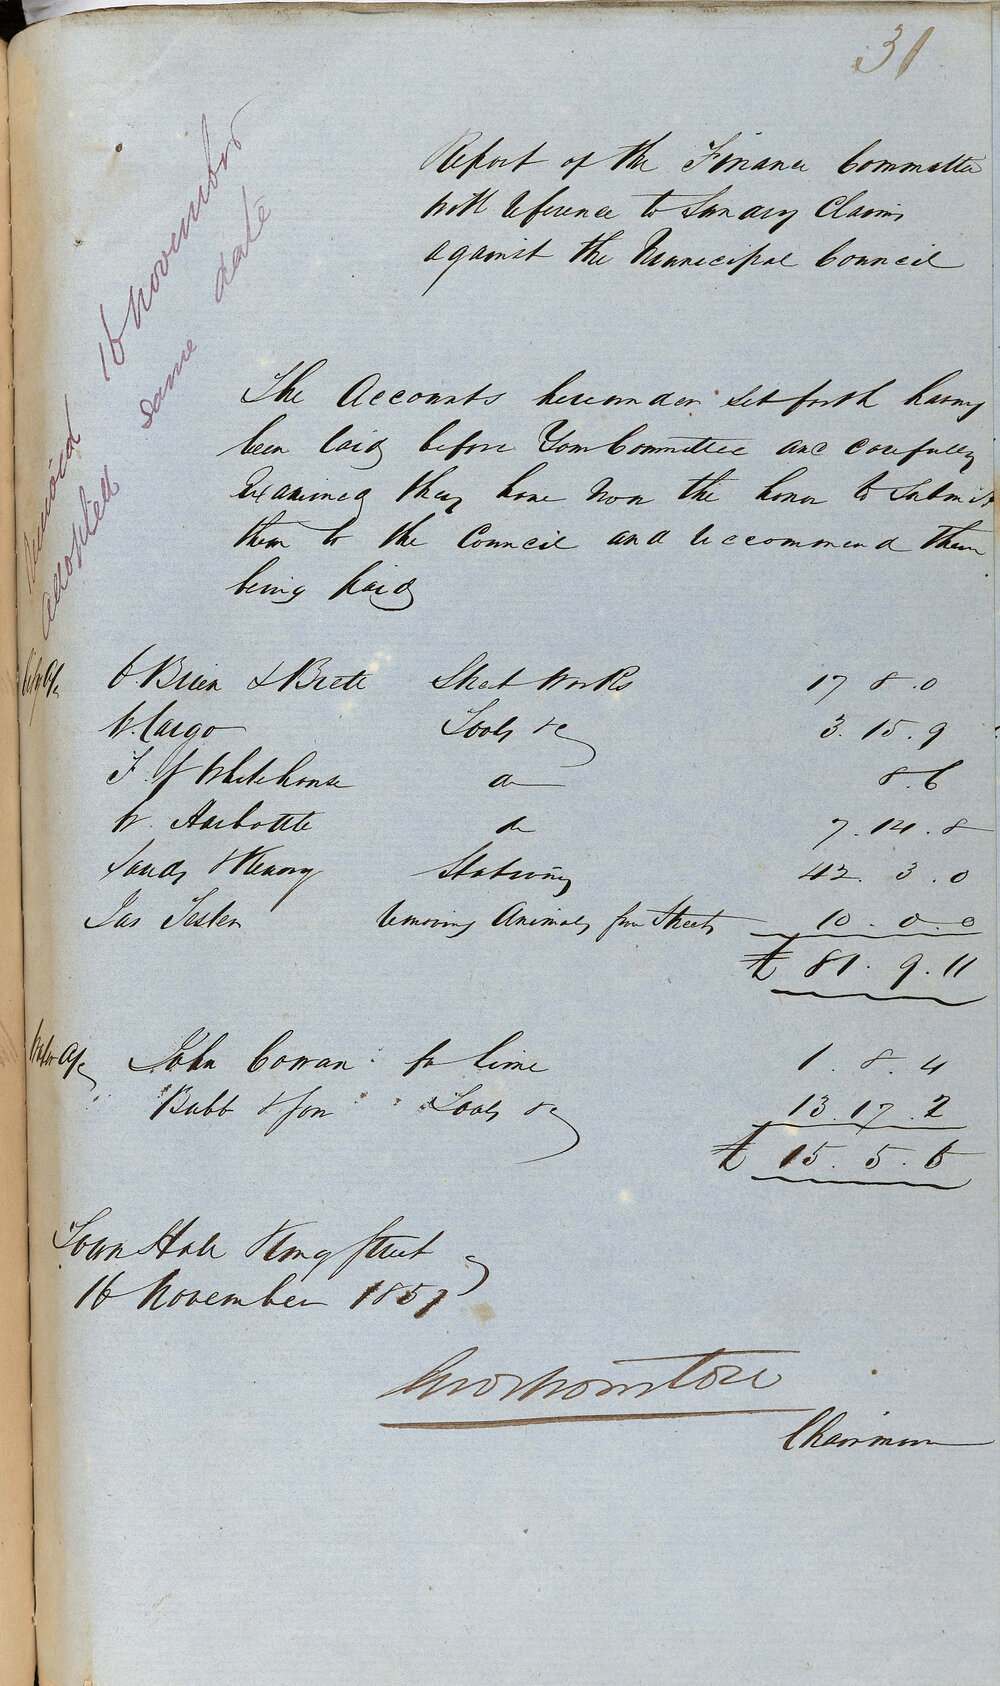 31
Received 16 November
adopted same date
Report of the Finance Committee
with reference to Sundry Claims
against the Municipal Council
The Accounts hereunder set forth having
been laid before Your Committee and carefully
Examined they have now the honor to Submit
them to the Council and reccommend them
being paid
City A/c
O'Brien & Brett Street Works 17 8. 0
W. Cargo Tools &c 3. 15. 9
F. J Whitehouse do 8. 6
W. Harbottle do 7. 14. 8
Sands & Kenny Stationy 42. 3. 0
Jas Tester removing Animals from Streets 10. 0. 0
£ 81. 9. 11
Water A/c
John Cowan for lime 1. 8. 4
Bubb & Son Tools &c 13. 17. 2
£ 15. 5. 6
Town Hall King Street
16 November 1857
Chairman